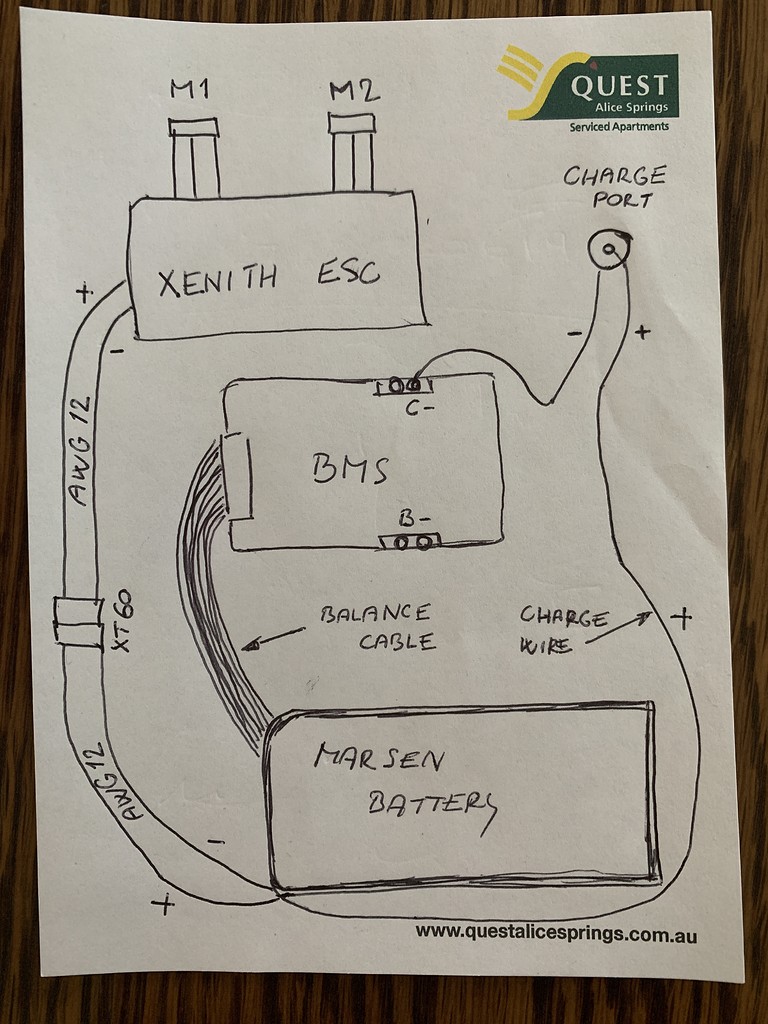 QUEST
Alice Springs
Serviced Apartments
M1
M2
CHARGE
PORT
XENITH ESC
+
-
-
+
AWG 12
C-
BMS
B-
XT60
BALANCE
CABLE
CHARGE
WIRE
+
MARSEN
BATTERY
AWG12
-
+
www.questalicesprings.com.au